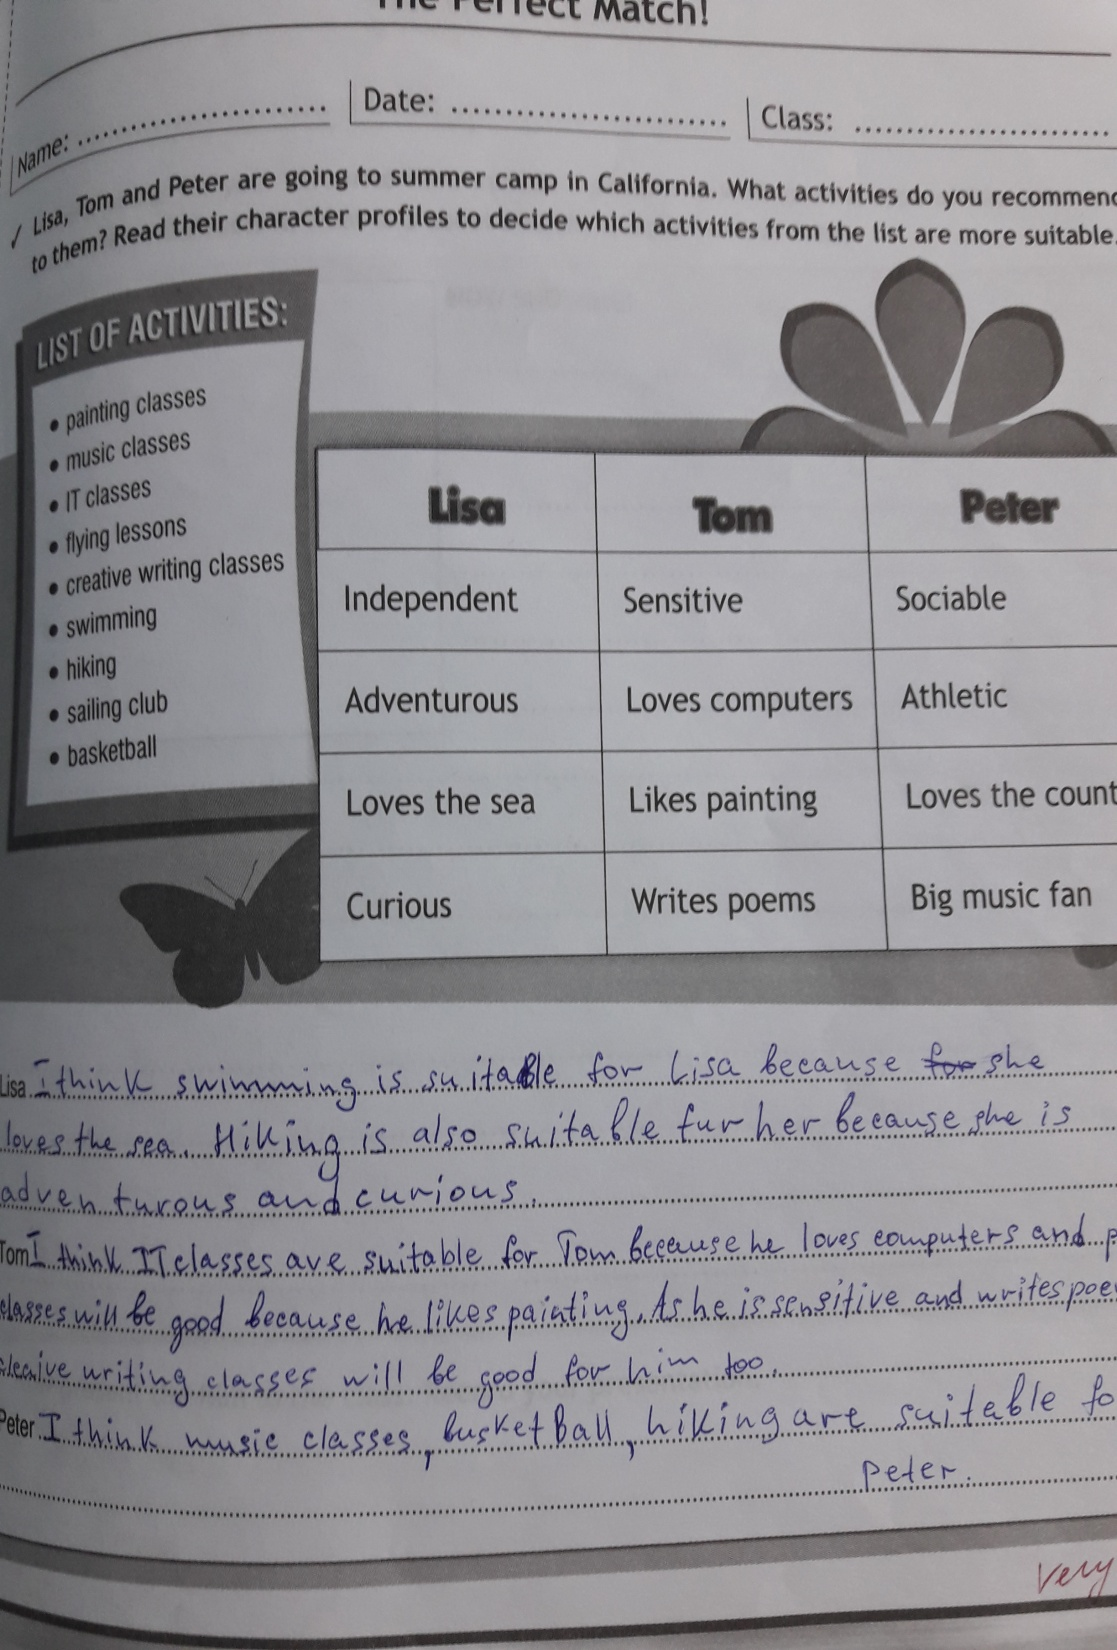 The Perfect Match!
Name: ..............................
Date: ..............................
Class: ..............................
Lisa, Tom and Peter are going to summer camp in California. What activities do you recommend
to them? Read their character profiles to decide which activities from the list are more suitable.
LIST OF ACTIVITIES:
• painting classes
• music classes
• IT classes
• flying lessons
• creative writing classes
• swimming
• hiking
• sailing club
• basketball
Lisa Tom Peter
Independent Sensitive Sociable
Adventurous Loves computers Athletic
Loves the sea Likes painting Loves the count
Curious Writes poems Big music fan
Lisa I think swimming is suitable for Lisa because for she
loves the sea. Hiking is also suitable fur her because she is
adventurous and curious.
Tom I think IT classes are suitable for Tom because he loves computers and p
classes will be good because he likes painting. As he is sensitive and writes poe
writing classes will be good for him too.
Peter I think music classes, busketball, hiking are suitable fo
Peter.
Very